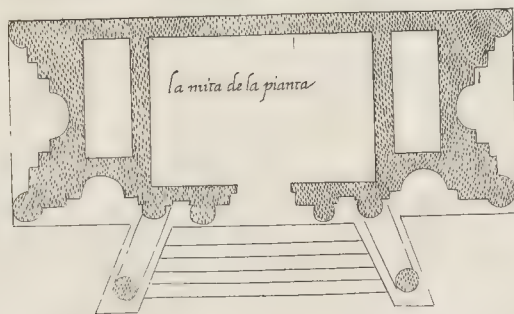 la mita de la pianta